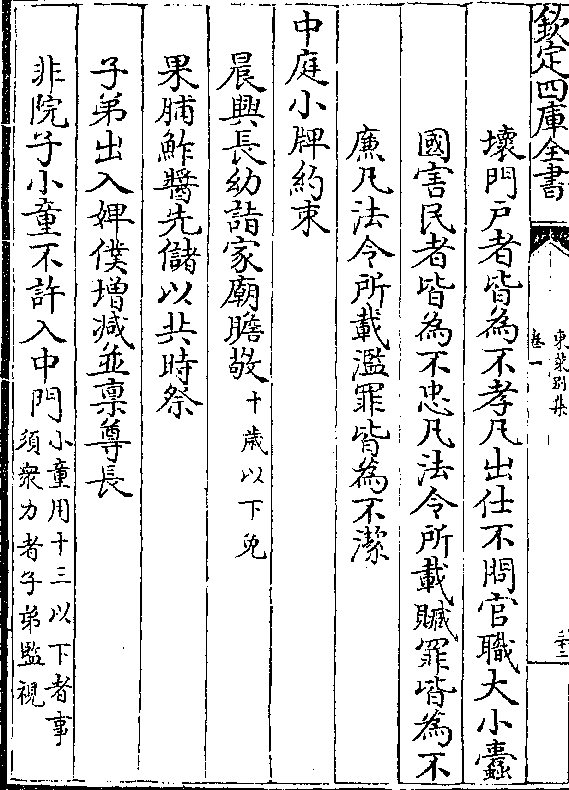 欽定四庫全書
東萊別集
卷一
壞門戶者皆為不孝凡出仕不問官職大小蠹
國害民者皆為不忠凡法令所載贓罪皆為不
廉凡法令所載濫罪皆為不潔
中庭小牌約束
晨興長幼詣家廟瞻敬十歲以下免
果脯鮓醬先儲以共時祭
子弟出入婢僕增減並稟尊長
非院子小童不許入中門小童用十三以下者事須衆力者子弟監視